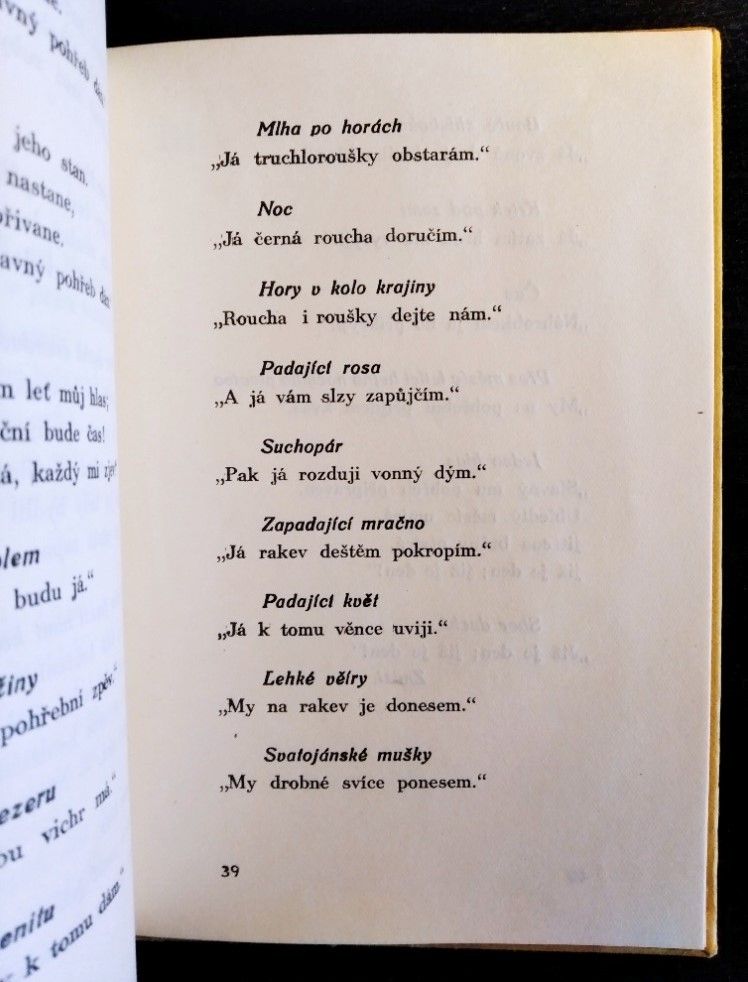 avný pohřeb
jeho stan.
nastane,
avný pohřeb
leť můj hlas;
ční bude čas!
každý mi
budu já.“
pohřební zpěv.“
vichr má.“
k tomu dám.“
Mlha po horách
„Já truchloroušky obstarám.“
Noc
„Já černá roucha doručím.“
Hory v kolo krajiny
„Roucha i roušky dejte nám.“
Padající rosa
„A já vám slzy zapůjčím.“
Suchopár
„Pak já rozduji vonný dým.“
Zapadající mračno
„Já rakev deštěm pokropím.“
Padající květ
„Já k tomu věnce uviji.“
Lehké větry
„My na rakev je donesem.“
Svatojánské mušky
„My drobné svíce ponesem.“
39